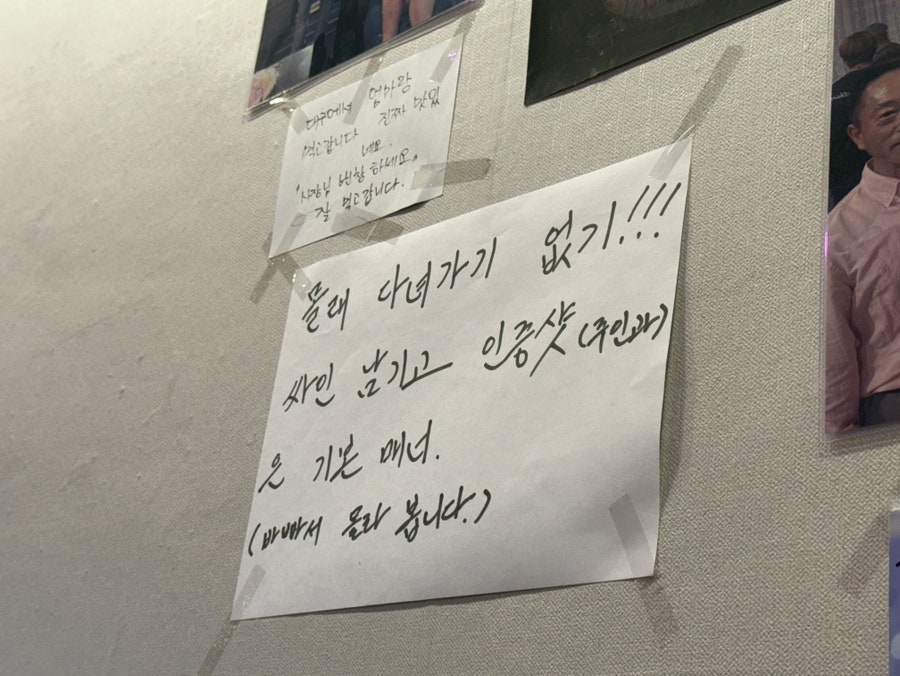 대구에서 엄마랑
먹고갑니다 진짜 맛있
네요.
"사장님 번창하세요"
잘 먹고갑니다.
몰래 다녀가기 없기!!!
싸인 남기고 인증샷(주인과)
은 기본 매너.
(바빠서 몰라 봅니다.)